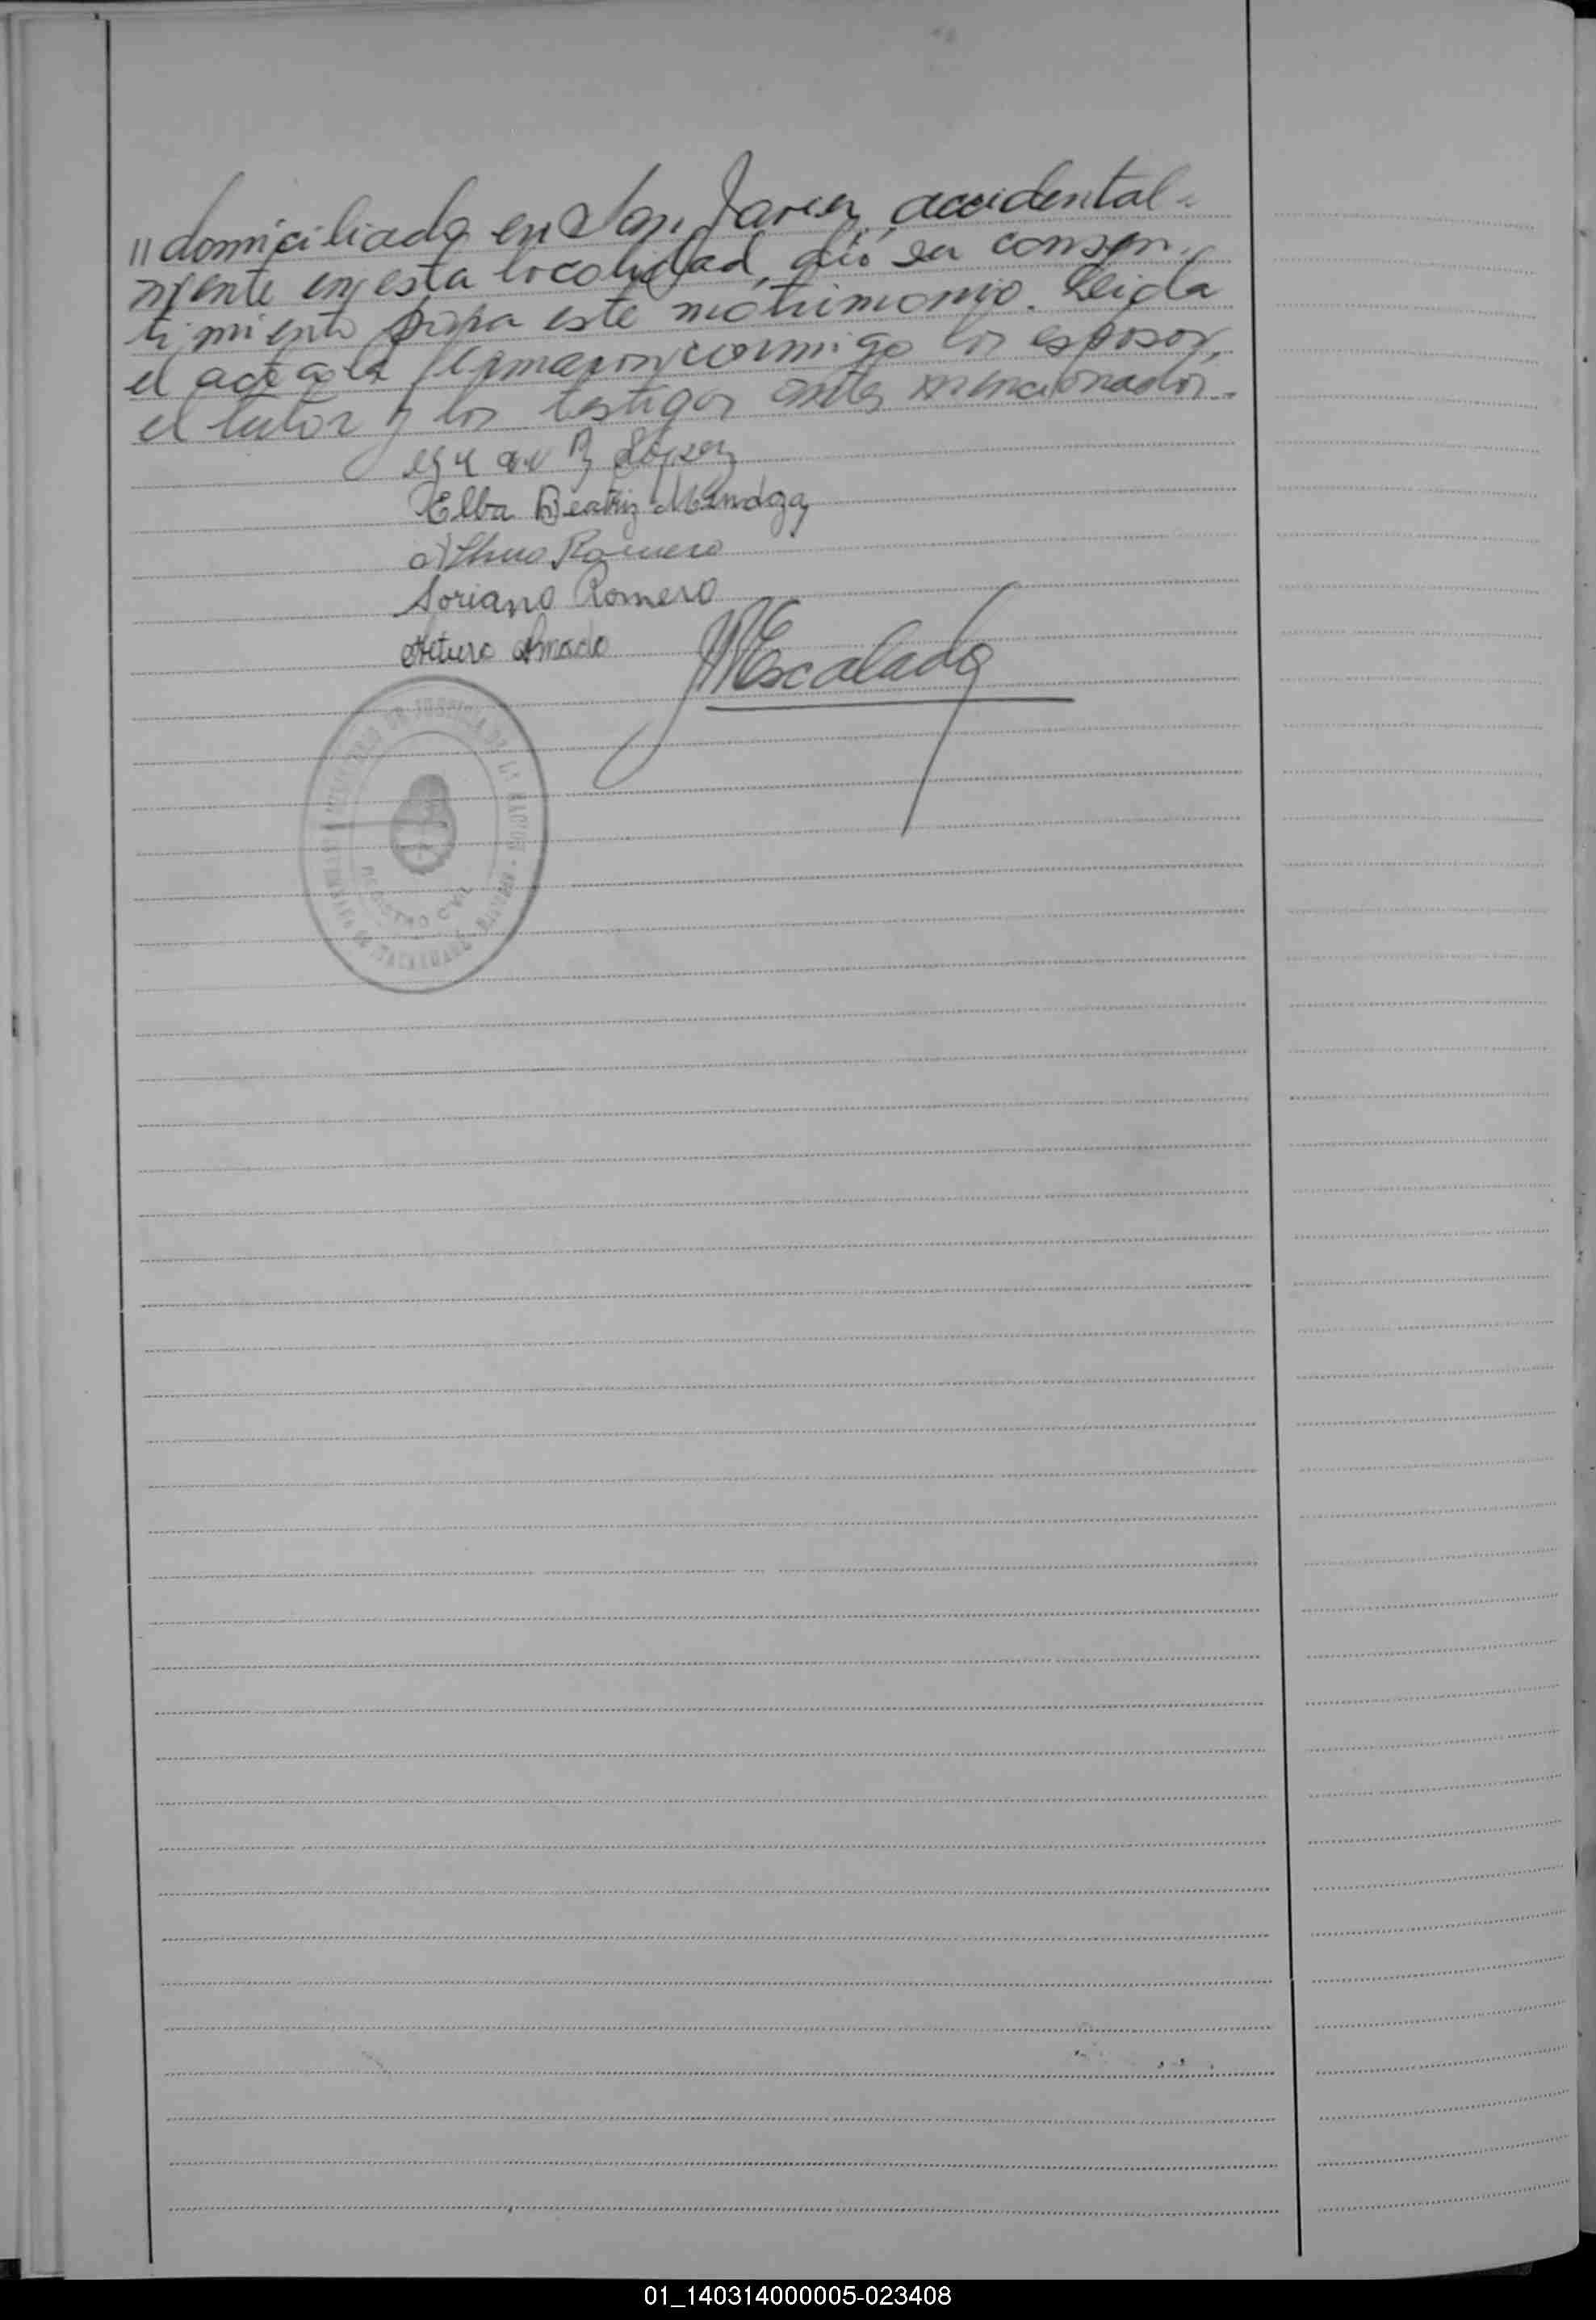 " domiciliada en San Javier, accidental-
mente en esta localidad, dió su consen-
timiento para este matrimonio. Leida
el acta la firmaron conmigo los esposos,
el tutor y los testigos antes mencionados.-
López
Elba Beatriz Mendoza
Romero
Soriano Romero
Arturo Amado
Escalada
MINISTERIO DE JUSTICIA DE LA NACION
REGISTRO CIVIL
01_140314000005-023408